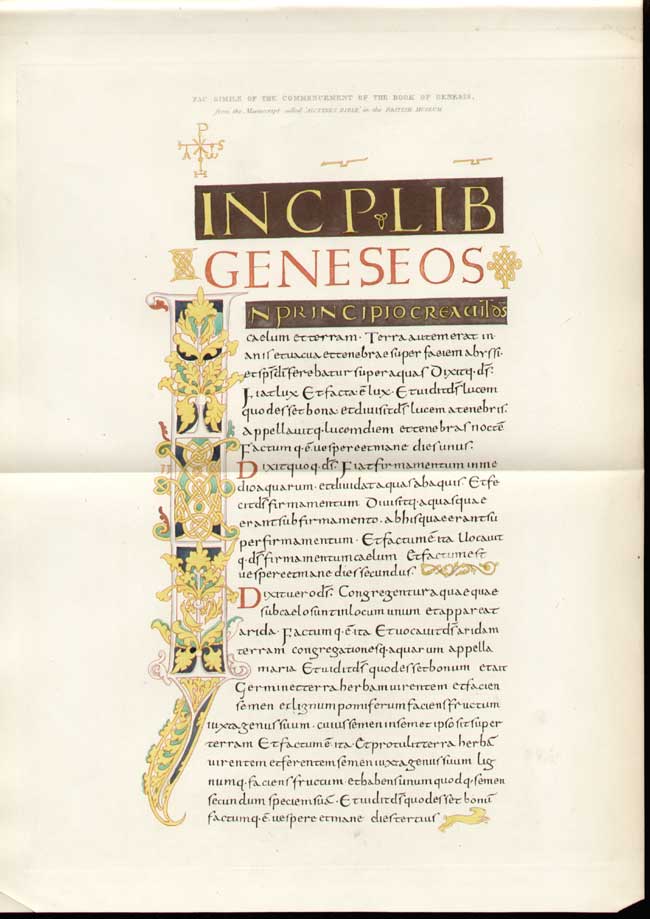 FAC SIMILE OF THE COMMENCEMENT OF THE BOOK OF GENESIS,
from the Manuscript called 'ALCUINE'S BIBLE' in the BRITISH MUSEUM
P
A S
INCP LIB
GENESEOS
INPRINCIPIO CREAVIT DS
caelum et terram · Terra autem erat in
anis et vacua et tenebrae super faciem abyssi·
et sps di ferebatur super aquas Dixitq· ds·
Fiat lux Et facta ē lux · Et vidit ds lucem
quod esset bona · et divisit ds lucem a tenebris·
appellavitq· lucem diem et tenebras noctē
Factumq· ē vespere et mane dies unus·
Dixit quoq· ds· Fiat firmamentum in me
dio aquarum · et dividat aquas ab aquis· Et fe
cit ds firmamentum Divisitq· aquas quae
erant sub firmamento · ab his quae erant su
per firmamentum · Et factum ē ita Vocavit
q· ds firmamentum caelum Et factum est
vespere et mane dies secundus·
Dixit vero ds· Congregentur aquae quae
sub caelo sunt in locum unum et appareat
arida · Factumq· ē ita · Et vocavit ds aridam
terram congregationesq· aquarum appella
maria Et vidit ds quod esset bonum et ait
Germinet terra herbam virentem et facien
semen et lignum pomiferum faciens fructum
iuxta genus suum · cuius semen in semet ipso sit super
terram Et factum ē ita · Et protulit terra herbā
virentem et ferentem semen iuxta genus suum lig
numq· faciens fructum · et habens unumquodq· semen
secundum speciem suā · Et vidit ds quod esset bonū
factumq· ē vespere et mane dies tertius